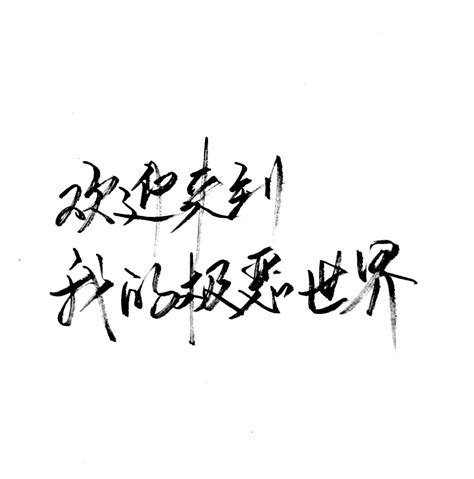 欢迎来到
我的极恶世界